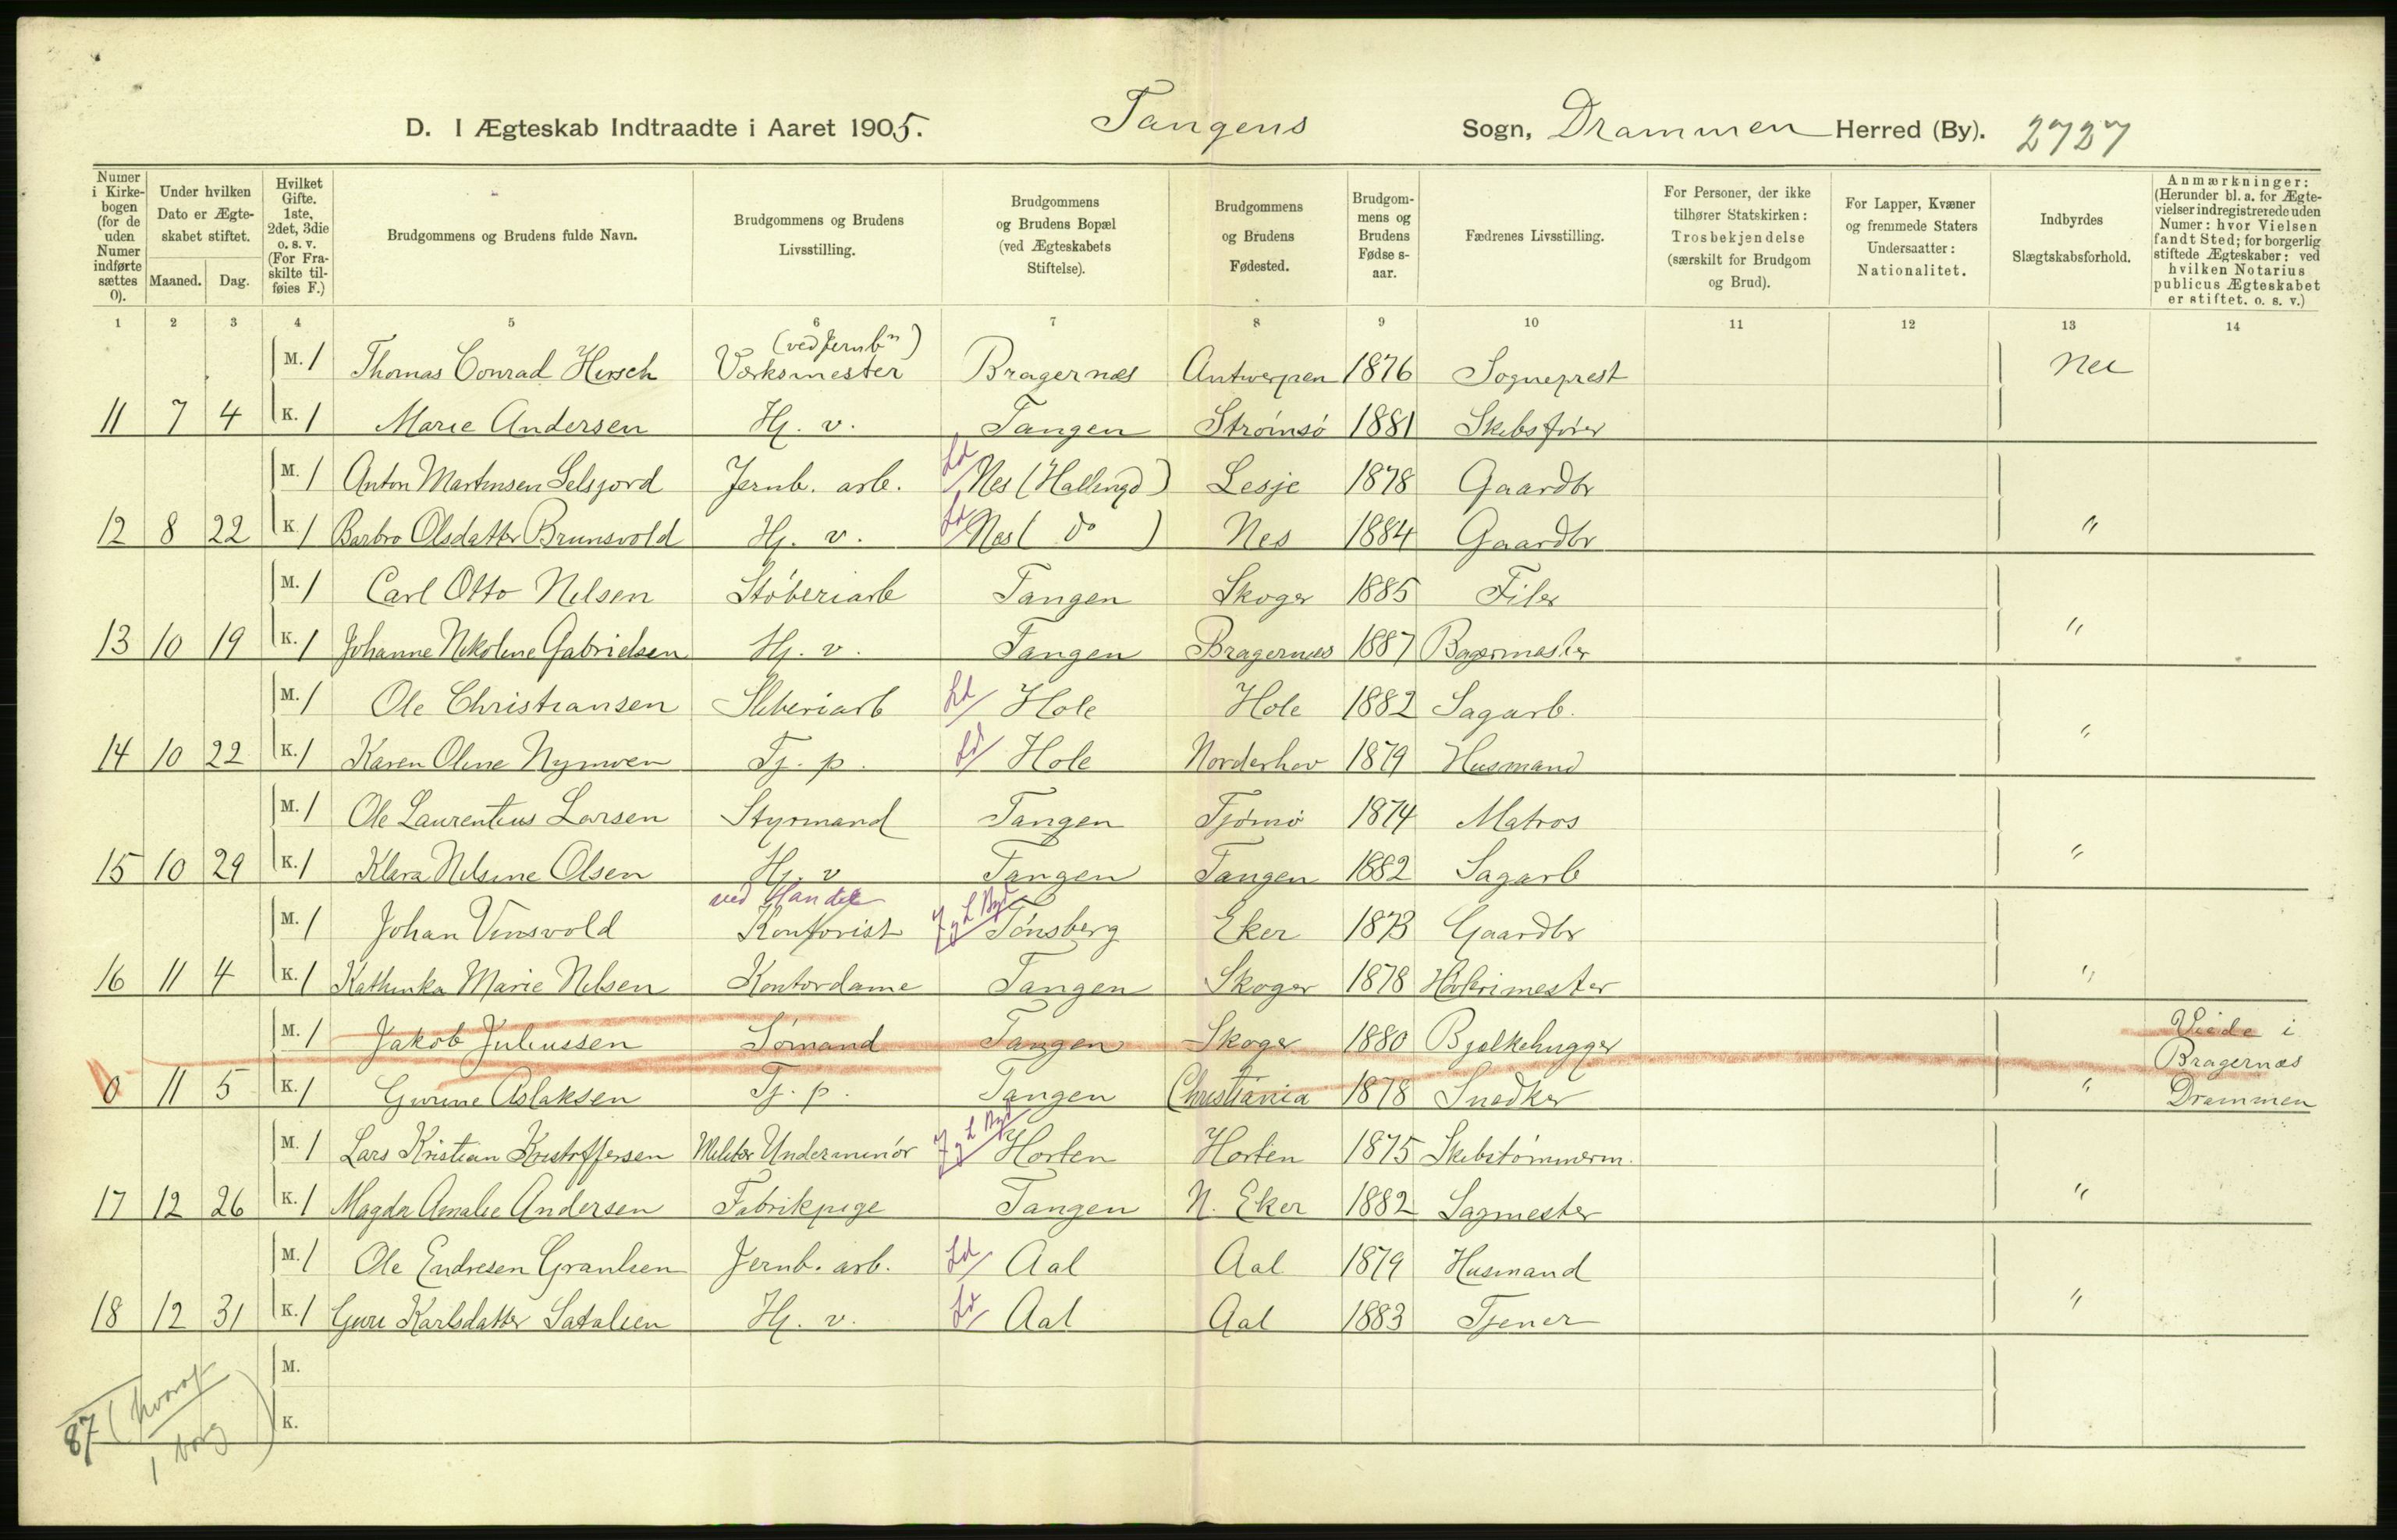 D. I Ægteskab Indtraadte i Aaret 1905. Tangens Sogn, Drammen Herred (By). 2727
Numer i Kirkebogen (for de uden Numer indførte sættes 0).
Under hvilken Dato er Ægteskabet stiftet.
Maaned. Dag.
Hvilket Gifte. 1ste, 2det, 3die o. s. v. (For Fraskilte tilføies F.)
Brudgommens og Brudens fulde Navn.
Brudgommens og Brudens Livsstilling.
Brudgommens og Brudens Bopæl (ved Ægteskabets Stiftelse).
Brudgommens og Brudens Fødested.
Brudgommens og Brudens Fødselsaar.
Fædrenes Livsstilling.
For Personer, der ikke tilhører Statskirken: Trosbekjendelse (særskilt for Brudgom og Brud).
For Lapper, Kvæner og fremmede Staters Undersaatter: Nationalitet.
Indbyrdes Slægtskabsforhold.
Anmærkninger: (Herunder bl. a. for Ægtevielser indregistrerede uden Numer: hvor Vielsen fandt Sted; for borgerlig stiftede Ægteskaber: ved hvilken Notarius publicus Ægteskabet er stiftet. o. s. v.)
1 2 3 4 5 6 7 8 9 10 11 12 13 14
(ved Jernbn)
M. 1 Thomas Conrad Hirsch Værksmester Bragernæs Antwerpen 1876 Sogneprest Nei
11 7 4 K. 1 Marie Andersen Hj. v. Tangen Strømsø 1881 Skibsfører
M. 1 Anton Martinsen Selsjord Jernb. arb. Ld Nes (Hallingd) Lesje 1878 Gaardbr
12 8 22 K. 1 Barbro Olsdatter Brunsvold Hj. v. Ld Nes (do) Nes 1884 Gaardbr "
M. 1 Carl Otto Nilsen Støberiarb Tangen Skoger 1885 Filer
13 10 19 K. 1 Johanne Nikoline Gabrielsen Hj. v. Tangen Bragernes 1887 Bagermester "
M. 1 Ole Christiansen Sliberiarb Ld Hole Hole 1882 Sagarb.
14 10 22 K. 1 Karen Oline Nymoen Tj. p. Ld Hole Norderhov 1879 Husmand "
M. 1 Ole Laurentius Larsen Styrmand Tangen Tjømø 1874 Matros
15 10 29 K. 1 Klara Nilsine Olsen Hj. v Tangen Tangen 1882 Sagarb "
ved Handel
M. 1 Johan Vinsvold Kontorist Tønsberg Eker 1873 Gaardbr
16 11 4 K. 1 Kathinka Marie Nilsen Kontordame Tangen Skoger 1878 Høvlerimester "
M. 1 Jakob Juliussen Sømand Tangen Skoger 1880 Bjelkehugger Viede i
Bragernæs
0 11 5 K. 1 Gurine Aslaksen Tj. p. Tangen Christiania 1878 Snedker " Drammen
M. 1 Lars Kristian Kristoffersen Militær Underminør Horten Horten 1875 Skibstømmerm.
17 12 26 K. 1 Magda Amalie Andersen Fabrikpige Tangen N. Eker 1882 Sagmester "
M. 1 Ole Endresen Granlien Jernb. arb. Ld Aal Aal 1879 Husmand
18 12 31 K. 1 Guri Karlsdatter Sataleen Hj. v. Ld Aal Aal 1883 Tjener "
M.
K.
87 (hvoraf
1 borg)